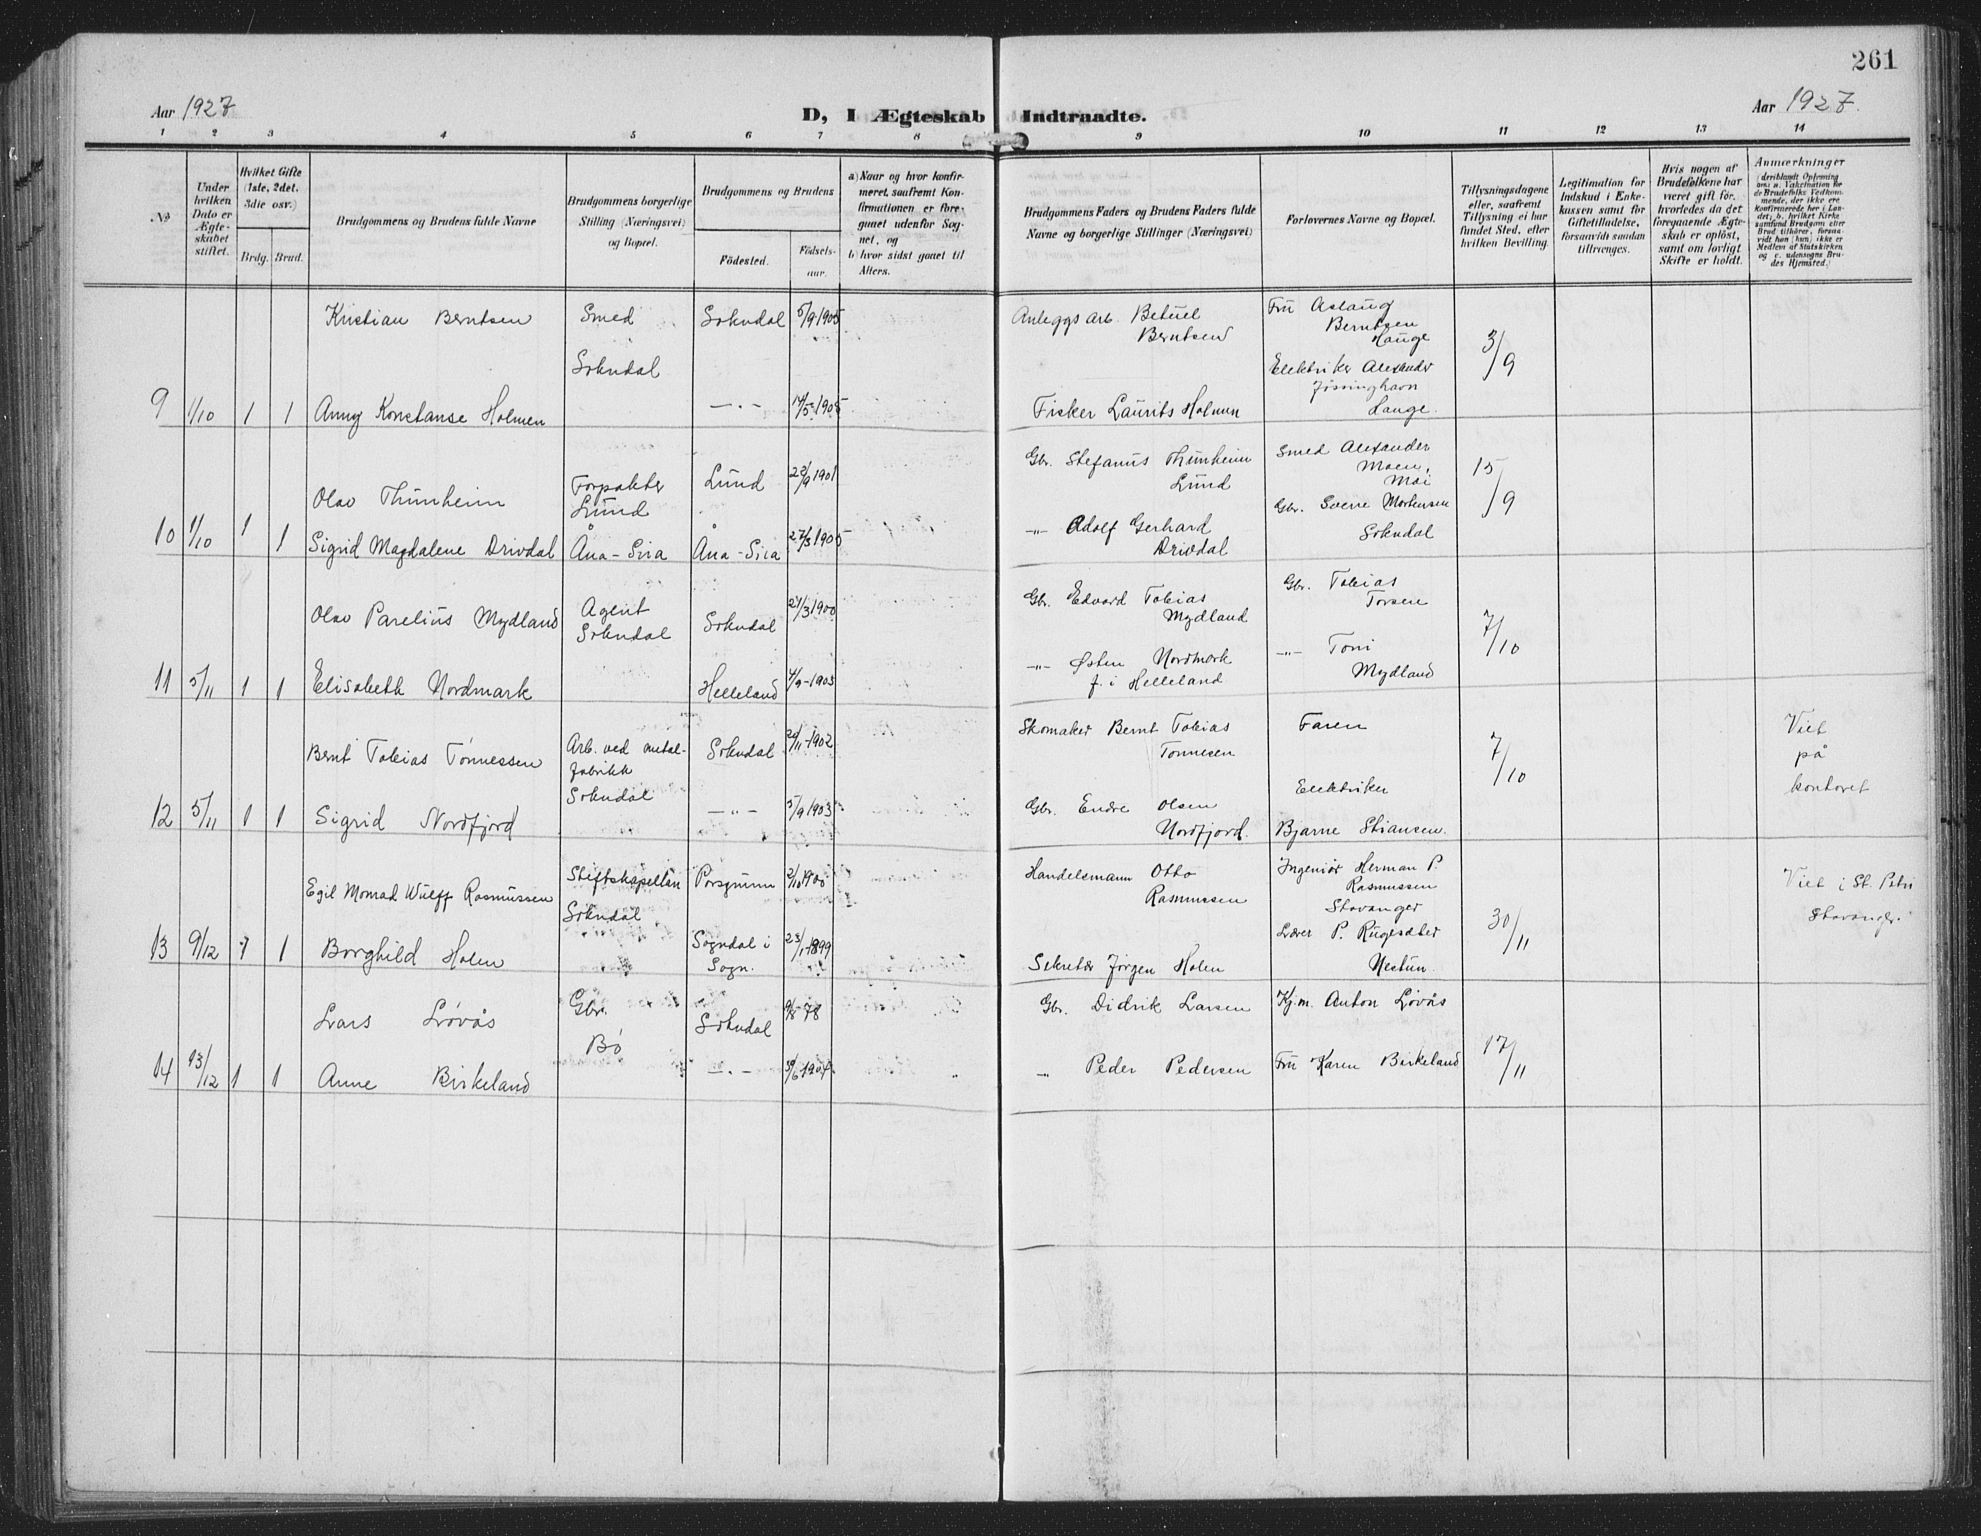 261
Aar 1927
D, I Ægteskab Indtraadte.
Aar 1927.
1 2 3 4 5 6 7 8 9 10 11 12 13 14
№
Under hvilken Dato er Ægteskabet stiftet.
Hvilket Gifte (1ste, 2det, 3die osv.)
Brdg. Brud.
Brudgommens og Brudens fulde Navne
Brudgommens borgerlige Stilling (Næringsvei) og Bopæl.
Brudgommens og Brudens
Fødested.
Fødselsaar.
a) Naar og hvor konfirmeret, saafremt Konfirmationen er foregaaet udenfor Sognet, og
b) hvor sidst gaaet til Alters.
Brudgommens Faders og Brudens Faders fulde Navne og borgerlige Stillinger (Næringsvei)
Forlovernes Navne og Bopæl.
Tillysningsdagene eller, saafremt Tillysning ei har fundet Sted, efter hvilken Bevilling.
Legitimation for Indskud i Enkekassen samt for Giftetilladelse, forsaavidt saadan tiltrænges.
Hvis nogen af Brudefolkene har været gift før, hvorledes da det foregaaende Ægteskab er opløst, samt om lovligt Skifte er holdt.
Anmærkninger
Kristian Berntsen Smed Sokndal 5/9 1905 Anleggs arb. Betuel Berntsen Fru Aslaug Berntsen Hauge 3/9
Sokndal Elektriker Alexander Jøssinghavn Hauge.
9 1/10 1 1 Anny Konstanse Holmen —"— 14/5 1905 Fisker Laurits Holmen
Olav Thunheim Forpakter Lund Lund 22/9 1901 Gbr. Stefanus Thunheim Lund Smed Alexander Moen, Moi 15/9
10 1/10 1 1 Sigrid Magdalene Drivdal Åna-Sira Åna-Sira 27/3 1905 —"— Adolf Gerhard Drivdal Gbr. Sverre Mortensen Sokndal
Olav Parelius Mydland Agent Sokndal Sokndal 24/3 1900 Gbr. Edvard Tobias Mydland Gbr. Tobias Torsen 7/10
11 5/11 1 1 Elisabeth Nordmark Helleland 4/9-1903 —"— Østen Nordmark f. i Helleland —"— Toni Mydland
Bernt Tobias Tønnessen Arb. ved metalfabrikk Sokndal Sokndal 20/11-1902 Skomaker Bernt Tobias Tonnesen Faren 7/10 Viet på kontoret
12 5/11 1 1 Sigrid Nordfjord —"— 5/9 1903 Gbr. Endre Olsen Nordfjord. Elektriker Bjarne Stiansen.
Egil Monrad Wulff Rasmussen Stiftskapellan Sokndal Porsgrunn 2/10 1900 Handelsmann Otto Rasmussen Ingeniør Herman P. Rasmussen Stavanger 30/11 Viet i St. Petri Stavanger.
13 9/12 1 1 Borghild Holen Sogndal i Sogn. 23/1-1899 Sekretær Jørgen Holen Lærer P. Rugesæter Nestun.
Lars Løvås Gbr. Bø Sokndal 9/8-78 Gbr. Didrik Larsen Kj.m. Anton Løvås 17/11
14 13/12 1 1 Anne Birkeland —"— 30/6-1904 " Peder Pedersen Fru Karen Birkeland